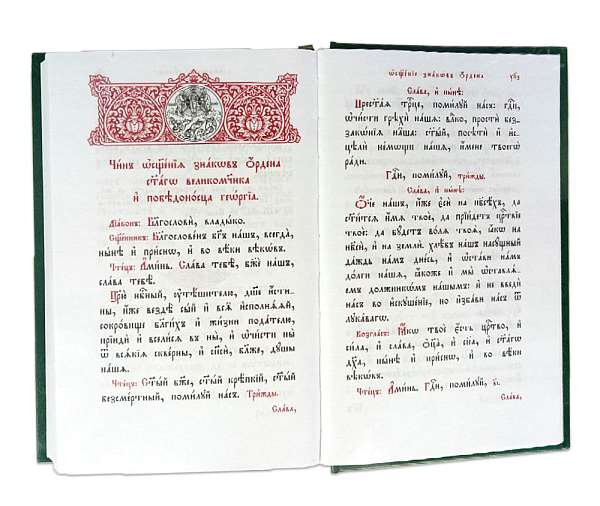 Чи́нъ ѡ҆сщ҃е́нїѧ зна́кѡвъ Ѻ҆́рдена
ст҃а́гѡ великомч҃нка
и҆ побѣдоно́сца геѡ́ргїѧ.
Дїа́конъ: Бл҃гословѝ, влады́ко.
Сщ҃е́нникъ: Бл҃гослове́нъ бг҃ъ на́шъ, всегда̀,
ны́нѣ и҆ при́снѡ, и҆ во вѣ́ки вѣкѡ́въ.
Чте́цъ: А҆ми́нь. Сла́ва тебѣ̀, бж҃е на́шъ,
сла́ва тебѣ̀.
Цр҃ю̀ нбⷭ҇ный, ѹ҆тѣ́шителю, дш҃е и҆́сти-
ны, и҆́же вездѣ̀ сы́й и҆ всѧ̑ и҆сполнѧ́ѧй,
сокро́вище бл҃ги́хъ и҆ жи́зни пода́телю,
прїидѝ и҆ всели́сѧ в ны̀, и҆ ѡ҆чи́сти ны̀
ѿ всѧ́кїѧ скве́рны, и҆ сп҃сѝ, бл҃же, дѹ́шы
на́шѧ.
Чте́цъ: Ст҃ы́й бж҃е, ст҃ы́й крѣ́пкїй, ст҃ы́й
безсме́ртный, поми́лѹй на́съ. Три́жды.
Сла́ва,
ѡ҆сщ҃е́нїе зна́кѡвъ Ѻ҆́рдена
Сла́ва, и҆ ны́нѣ:
Прест҃а́ѧ трⷪ҇це, поми́лѹй на́съ: гдⷭ҇и,
ѡ҆чи́сти грѣхѝ на́шѧ: влⷣко, простѝ без-
закѡ́нїѧ на̑ша: ст҃ы́й, посѣтѝ и҆ и҆с-
цѣлѝ не́мощи на́шѧ, и҆́мене твоегѡ̀
ра́ди.
Гдⷭ҇и, поми́лѹй, три́жды.
Сла́ва, и҆ ны́нѣ:
Ѻ҆́ч҃е на́шъ, и҆́же є҆сѝ на нб҃сѣ́хъ, да
ст҃и́тсѧ и҆́мѧ твоѐ, да прїи́детъ црⷭ҇твїе
твоѐ: да бѹ́детъ во́лѧ твоѧ̀, ꙗ҆́кѡ на
нб҃сѝ, и҆ на землѝ, хлѣ́бъ на́шъ насѹ́щный
да́ждь на́мъ дне́сь, и҆ ѡ҆ста́ви на́мъ
до́лги на́шѧ, ꙗ҆́коже и҆ мы̀ ѡ҆ставлѧ́-
емъ должникѡ́мъ на́шымъ: и҆ не введѝ
на́съ во и҆скѹше́нїе, но и҆зба́ви на́съ ѿ
лѹка́вагѡ.
Во́згласъ: Ꙗ҆́кѡ твоѐ є҆́сть црⷭ҇тво, и҆
си́ла, и҆ сла́ва, ѻ҆ц҃а̀, и҆ сн҃а, и҆ ст҃а́гѡ
дх҃а, ны́нѣ и҆ при́снѡ, и҆ во вѣ́ки
вѣкѡ́въ.
Чте́цъ: А҆ми́нь. Гдⷭ҇и, поми́лѹй, в҃і.
Сла́ва,